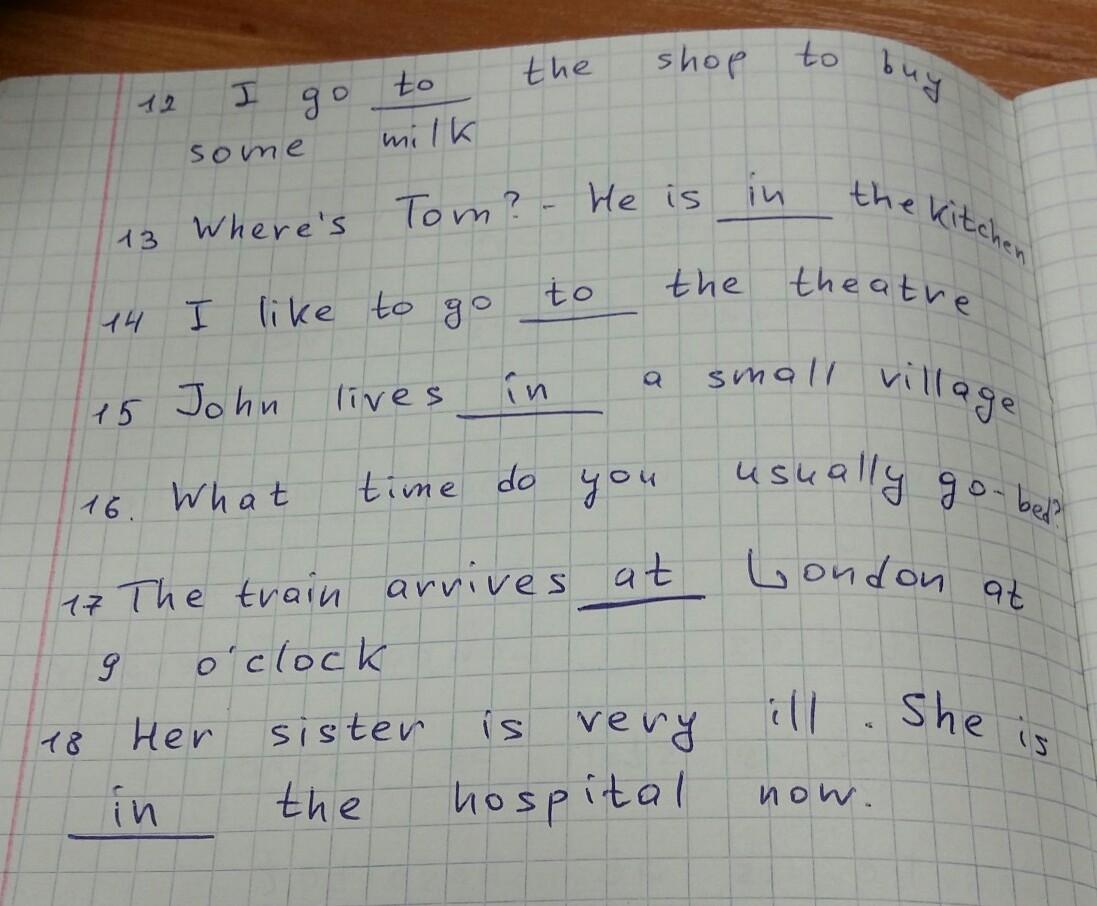 12 I go to the shop to buy
some milk
13 Where's Tom? - He is in the kitchen
14 I like to go to the theatre
15 John lives in a small village
16. What time do you usually go - bed?
17 The train arrives at London at
9 o'clock
18 Her sister is very ill. She is
in the hospital now.